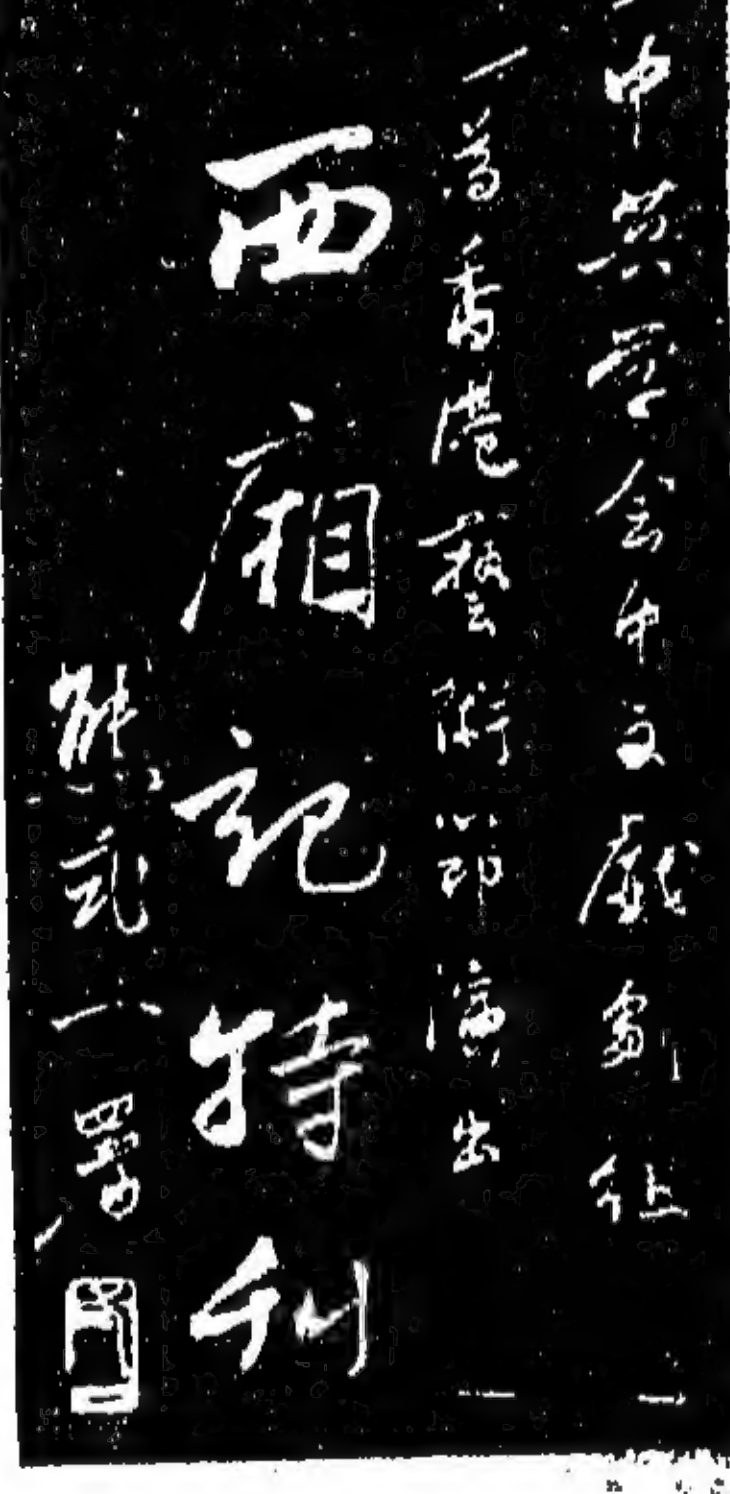 中英学会中文戯劇組
為香港藝術節演出
西廂記特刊
熊式一署